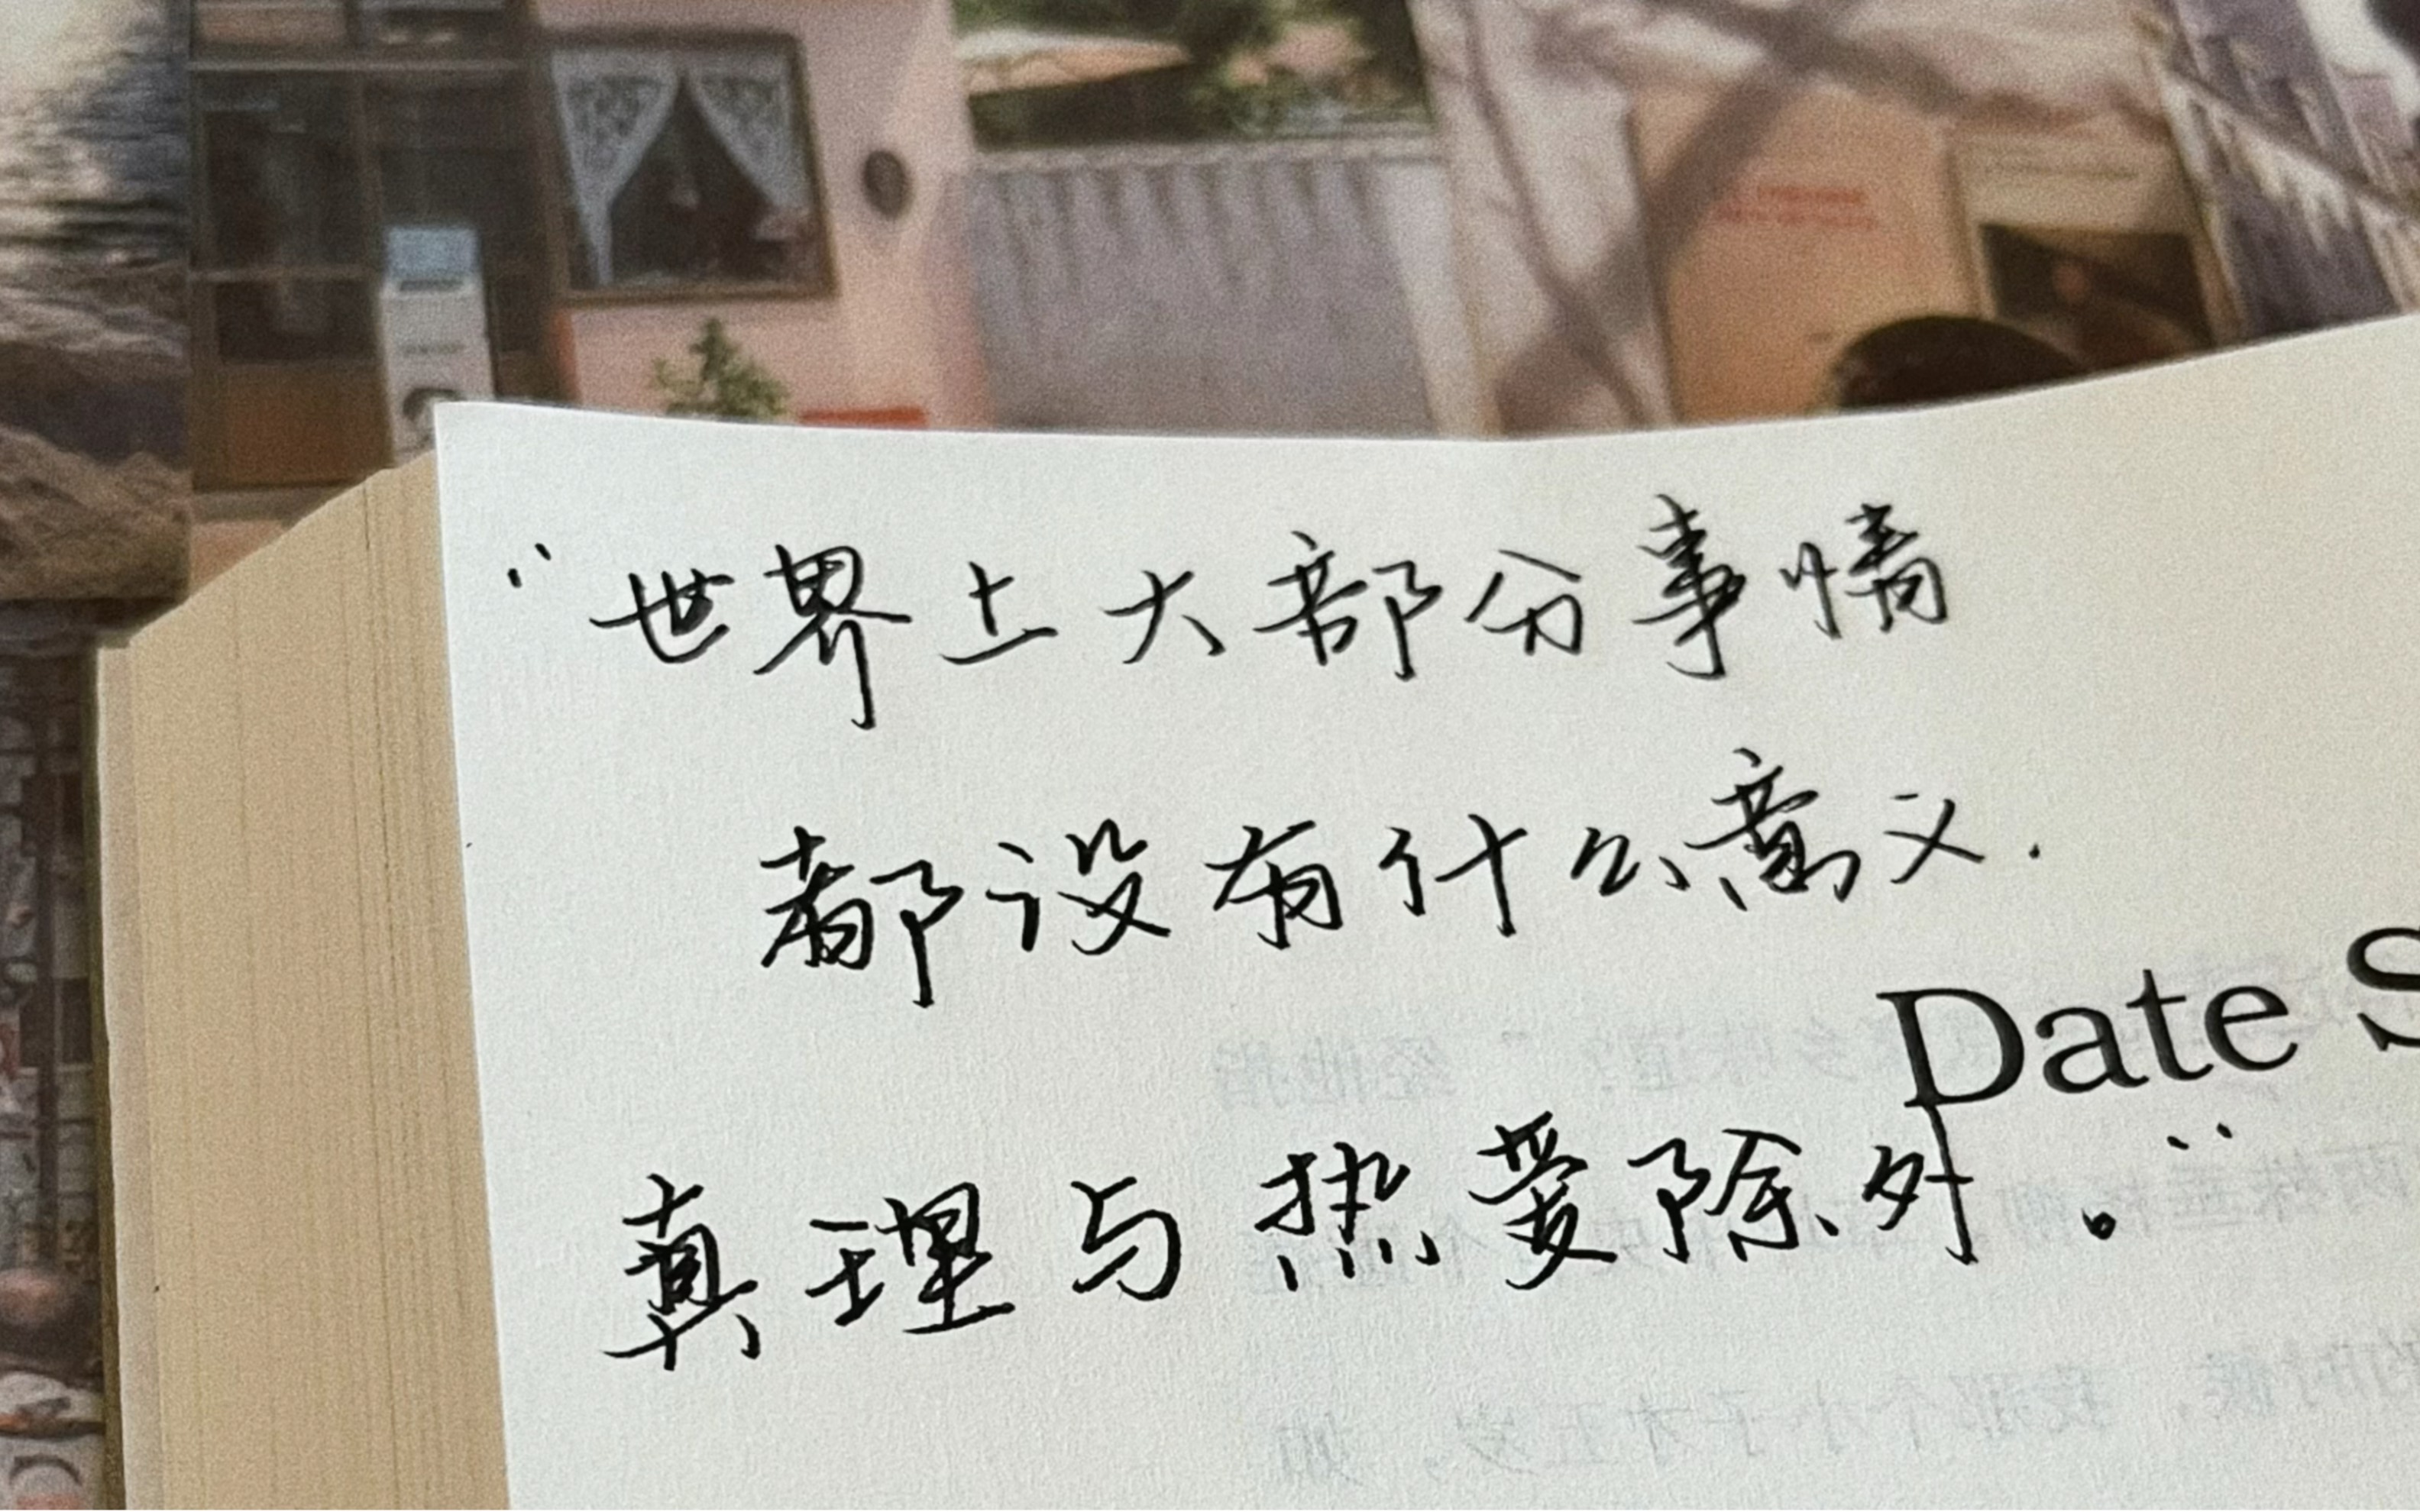 “世界上大部分事情
都没有什么意义.
Date S
真理与热爱除外。”